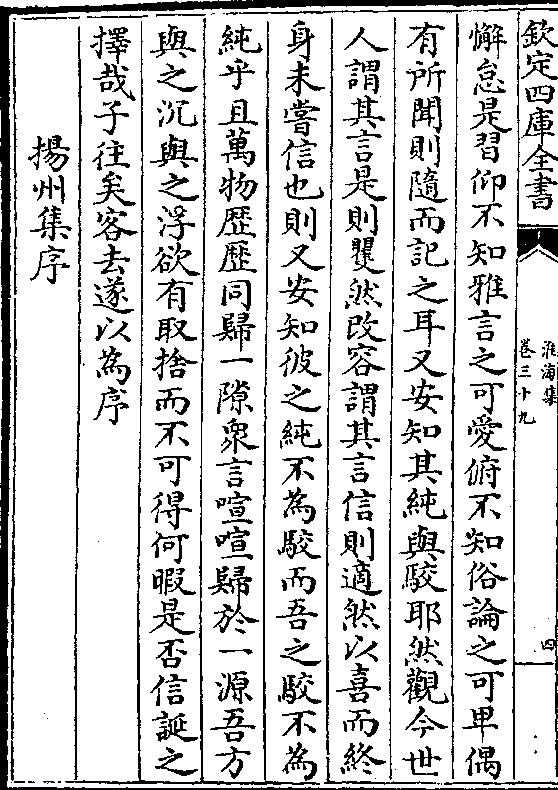 欽定四庫全書
淮海集
卷三十九
四
懈怠是習仰不知雅言之可愛俯不知俗論之可卑偶
有所聞則隨而記之耳又安知其純與駁耶然觀今世
人謂其言是則矍然改容謂其言信則適然以喜而終
身未嘗信也則又安知彼之純不為駁而吾之駁不為
純乎且萬物歴歴同歸一隙衆言喧喧歸於一源吾方
與之沉與之浮欲有取捨而不可得何暇是否信誕之
擇哉子往矣客去遂以為序
揚州集序